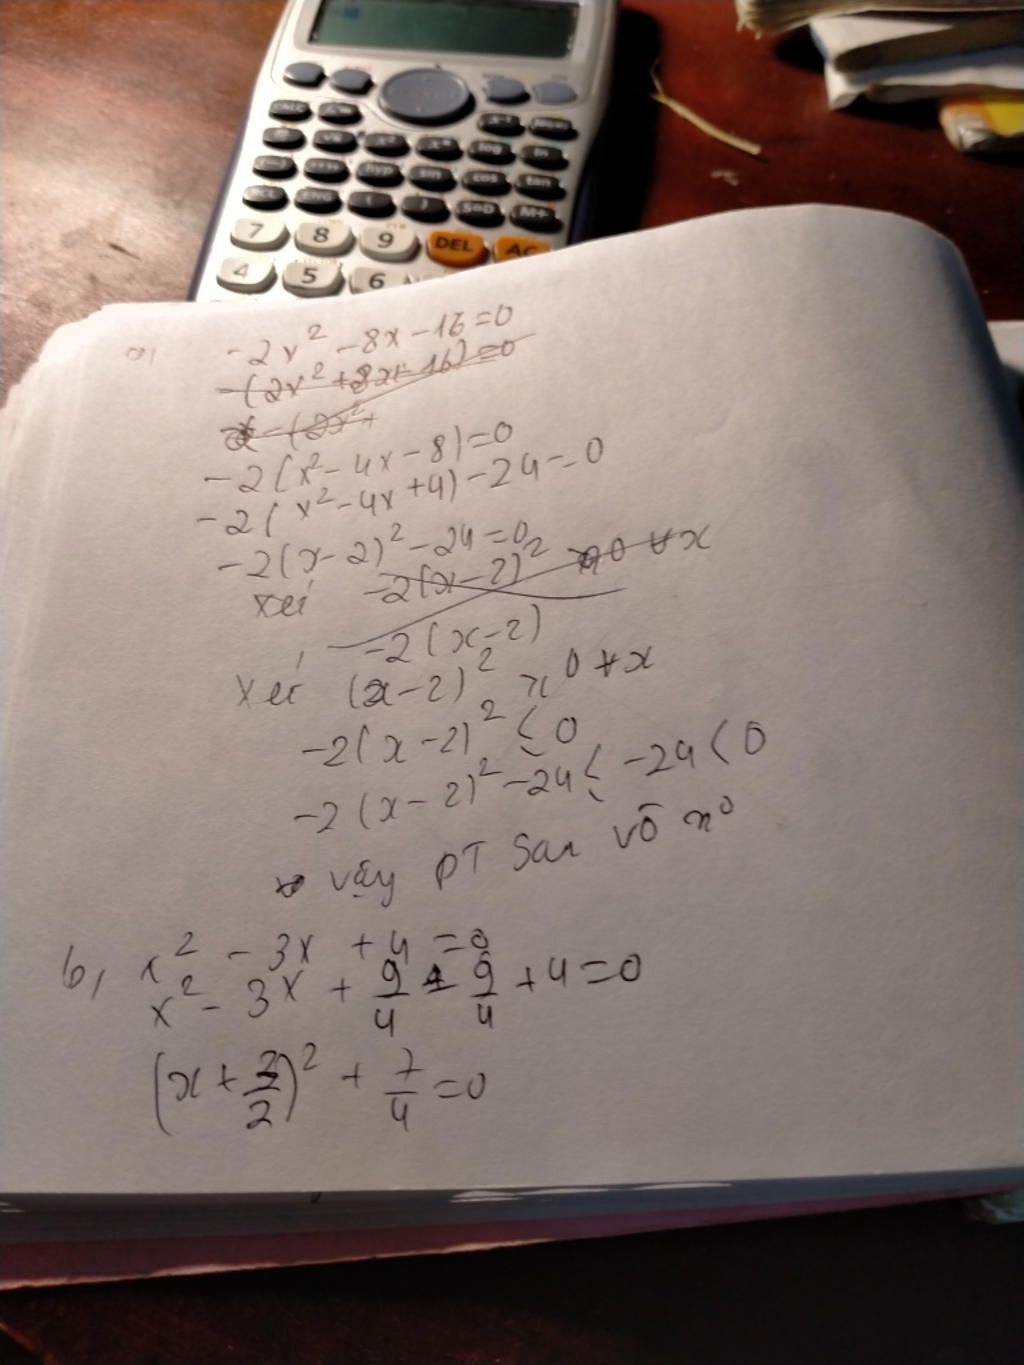 7 8 9 DEL AC
4 5 6
a, -2x² - 8x - 16 = 0
-(2x² + 8x + 16) = 0
-(2x² +
-2(x² - 4x - 8) = 0
-2(x² - 4x + 4) - 24 = 0
-2(x - 2)² - 24 = 0
xét -2(x - 2)² ≥ 0 ∀x
-2(x - 2)
Xét (x - 2)² ≥ 0 ∀x
-2(x - 2)² ≤ 0
-2(x - 2)² - 24 ≤ -24 < 0
vậy PT sau vô n⁰
b, x² - 3x + 4 = 0
x² - 3x + 9/4 - 9/4 + 4 = 0
(x + 3/2)² + 7/4 = 0